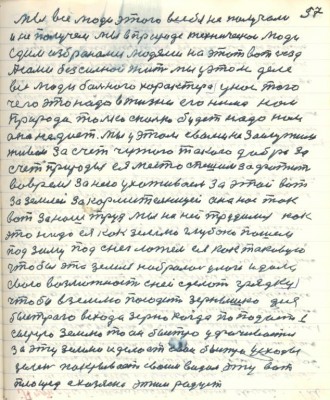 57
Мы все люди этого всего не получали
и не получем Мы в природе технически люди
с дим избраками людями на этот вот уход
Мы у этом деле
все люди больного характера у нас того
чего это надо в жизне его нема нам
Природа только сколько будет надо нам
она не дает. Мы у этом своими не заслужили
живем за счет чужого такого добра за
счет природы ея место спешим захватить
вовремя за нею ухаживаем за этой вот
за землей за кормителницей она нас так
вот за наш труд мы на ней трудимся как
это надо ея как землю глубоко пашем
под зиму под снег ложем ея как таковую
чтобы эта земля набралась влаги и дала
свою возможность с ней сделать грядку
чтобы в землю посадить зернышко для
быстрого всхода зерно когда попадает в
сырую землю то ей быстро удачивается
за эту землю и делает свои быстро всходы
зелен покрывает своим видом эту вот
площед а хозяева этим радуют